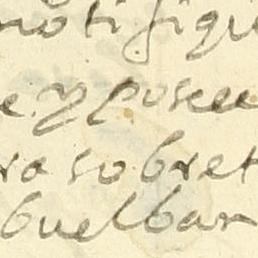 notifiqu
e. y posee
ra sobret
buelban